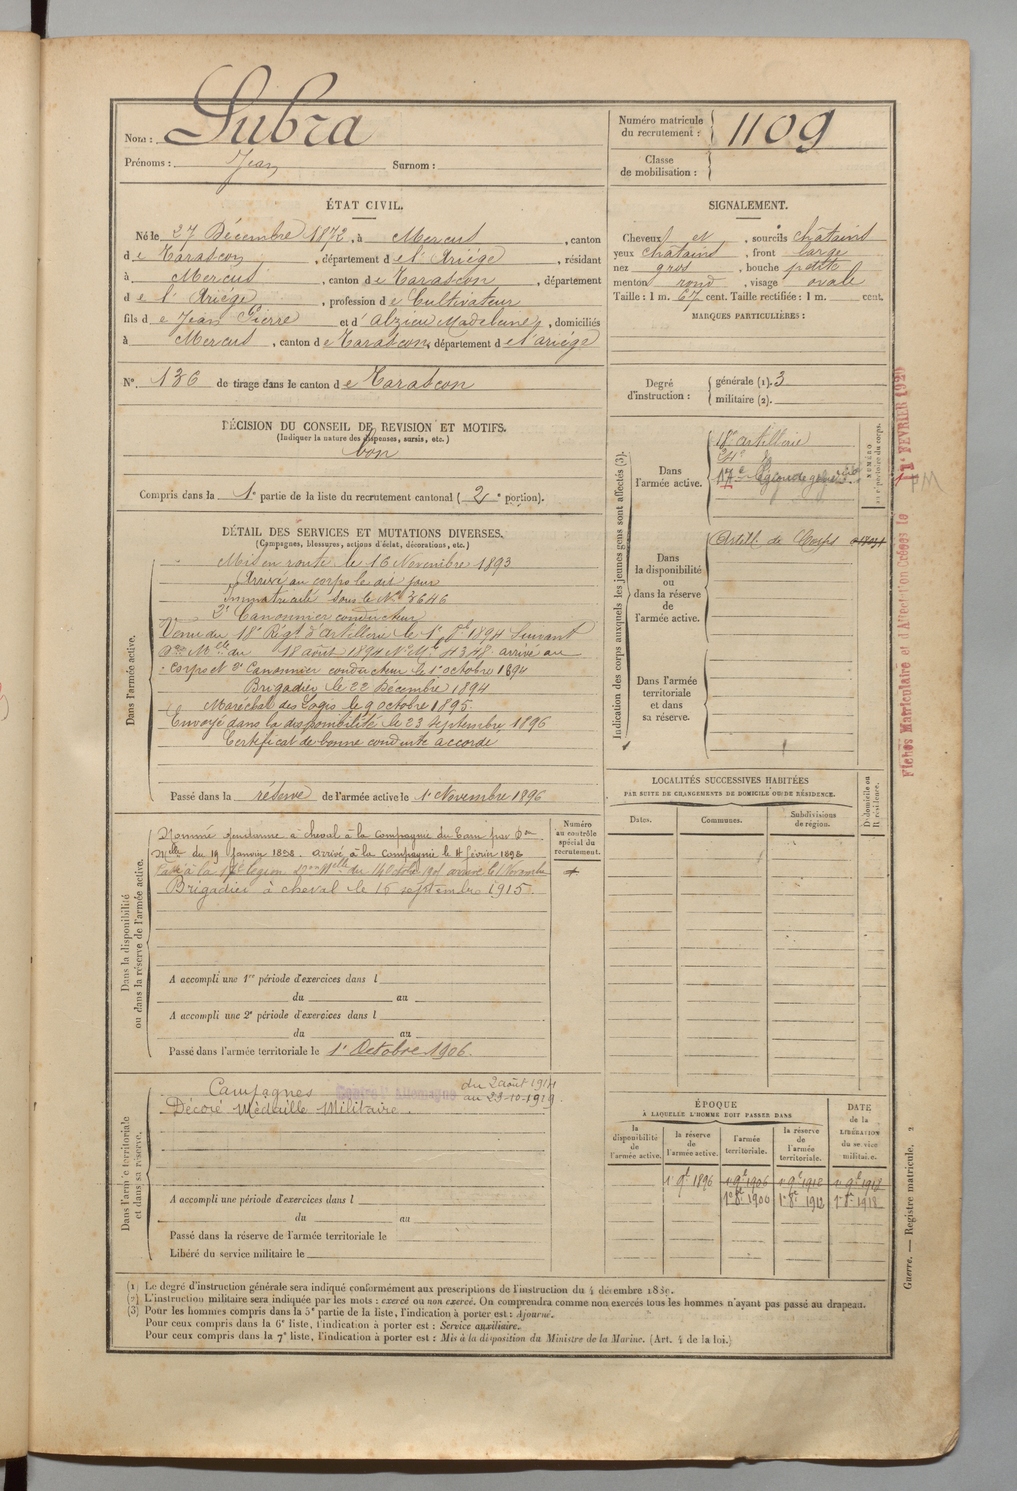 Nom : Lubra
Prénoms : Jean Surnom :
Numéro matricule du recrutement : 1109
Classe de mobilisation :
ÉTAT CIVIL.
Né le 27 Décembre 1872, à Mercus, canton
de Tarascon, département de l'Ariége, résidant
à Mercus, canton de Tarascon, département
de l'Ariége, profession de Cultivateur
fils de Jean Pierre et d'Alzieu Madeleine, domiciliés
à Mercus, canton de Tarascon, département de l'ariége
N° 136 de tirage dans le canton de Tarascon
SIGNALEMENT.
Cheveux et, sourcils châtains
yeux châtains, front large
nez gros, bouche petite
menton rond, visage ovale
Taille : 1 m. 67 cent. Taille rectifiée : 1 m. cent.
MARQUES PARTICULIÈRES :
Degré d'instruction : générale (1). 3
militaire (2).
DÉCISION DU CONSEIL DE REVISION ET MOTIFS.
(Indiquer la nature des dispenses, sursis, etc.)
bon
Compris dans la 1e partie de la liste du recrutement cantonal (2e portion).
DÉTAIL DES SERVICES ET MUTATIONS DIVERSES.
(Campagnes, blessures, actions d'éclat, décorations, etc.)
Dans l'armée active.
Mis en route le 16 Novembre 1893
Arrivé au corps le dit jour
Immatriculé sous le N° 3646
2e Canonnier conducteur
Venu du 18e Régt d'artillerie le 1er 8bre 1894 Suivant
Don Mlle du 18 août 1894 N° Mle 4348 arrivé au
corps et 2e Canonnier conducteur le 1er octobre 1894
Brigadier le 22 Décembre 1894
Maréchal des Logis le 9 octobre 1895
Envoyé dans la disponibilité le 23 septembre 1896
Certificat de bonne conduite accordé
Passé dans la réserve de l'armée active le 1er Novembre 1896
Indication des corps auxquels les jeunes gens sont affectés (3).
NUMÉRO au répertoire du corps.
Dans l'armée active.
18e artillerie
Dans la disponibilité ou dans la réserve de l'armée active.
Artill. de Corps
Dans l'armée territoriale et dans sa réserve.
Fiches Matriculaire et d'Affectation Créées le 1 FÉVRIER 1929
PM
Dans la disponibilité ou dans la réserve de l'armée active.
Numéro au contrôle spécial du recrutement.
Nommé gendarme à cheval à la Compagnie du Tarn par Don
Mlle du 19 Janvier 1898. arrivé à la Compagnie le 4 février 1898
Passé à la légion arrivé le 1 Novembre
Brigadier à cheval le 16 septembre 1915.
A accompli une 1re période d'exercices dans l
du au
A accompli une 2e période d'exercices dans l
du au
Passé dans l'armée territoriale le 1er Octobre 1906.
LOCALITÉS SUCCESSIVES HABITÉES
PAR SUITE DE CHANGEMENTS DE DOMICILE OU DE RÉSIDENCE.
Dates. Communes. Subdivisions de région. D. domicile ou R. résidence.
Dans l'armée territoriale et dans sa réserve.
Campagnes Contre l'Allemagne du 2 août 1914
au 23-10-1919.
Décoré Médaille Militaire.
A accompli une période d'exercices dans l
du au
Passé dans la réserve de l'armée territoriale le
Libéré du service militaire le
ÉPOQUE
À LAQUELLE L'HOMME DOIT PASSER DANS
la disponibilité de l'armée active. la réserve de l'armée active. l'armée territoriale. la réserve de l'armée territoriale.
DATE de la LIBÉRATION du service militaire.
1er 9bre 1896 1er 9bre 1906 1er 9bre 1912 1er 9bre 1918
Guerre. — Registre matricule. 2
(1) Le degré d'instruction générale sera indiqué conformément aux prescriptions de l'instruction du 4 décembre 1889.
(2) L'instruction militaire sera indiquée par les mots : exercé ou non exercé. On comprendra comme non exercés tous les hommes n'ayant pas passé au drapeau.
(3) Pour les hommes compris dans la 5e partie de la liste, l'indication à porter est : Ajourné.
Pour ceux compris dans la 6e liste, l'indication à porter est : Service auxiliaire.
Pour ceux compris dans la 7e liste, l'indication à porter est : Mis à la disposition du Ministre de la Marine. (Art. 4 de la loi.)